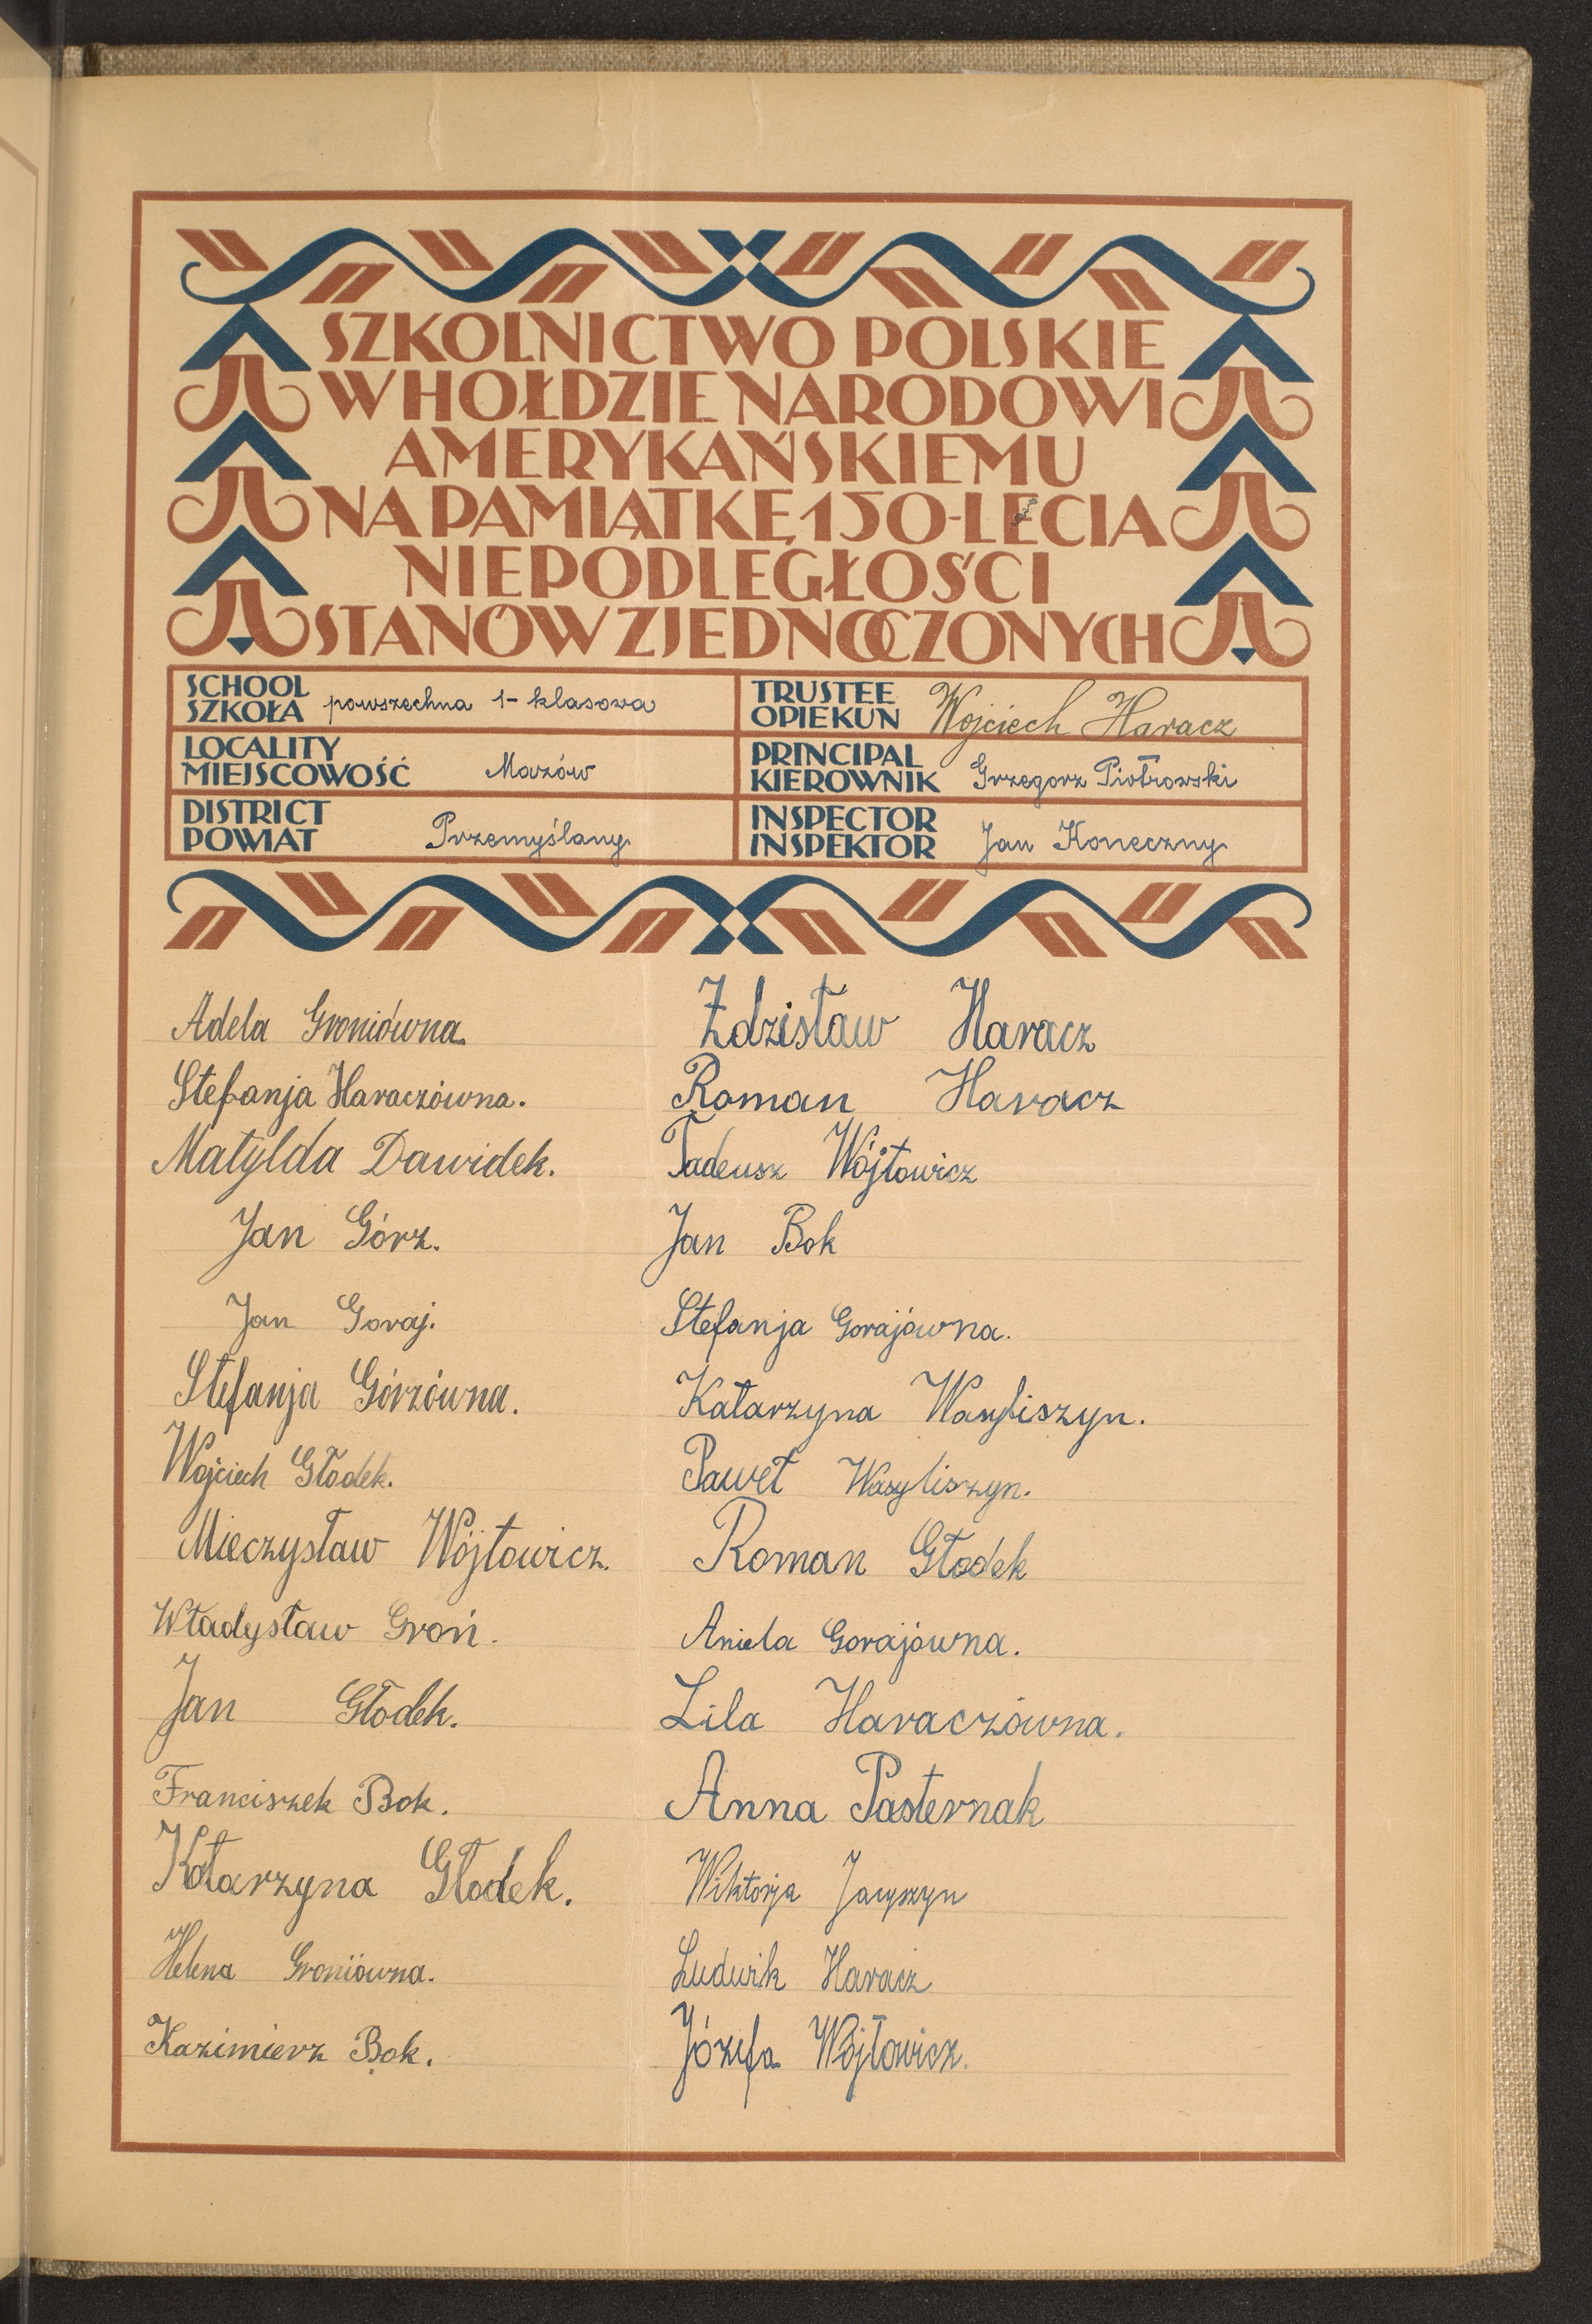 SZKOLNICTWO POLSKIE
W HOŁDZIE NARODOWI
AMERYKAŃSKIEMU
NA PAMIĄTKĘ 150-LECIA
NIEPODLEGŁOŚCI
STANÓW ZJEDNOCZONYCH
SCHOOL
SZKOŁA powszechna 1-klasowa
TRUSTEE
OPIEKUN Wojciech Haracz
LOCALITY
MIEJSCOWOŚĆ Mazów
PRINCIPAL
KIEROWNIK Grzegorz Piotrowski
DISTRICT
POWIAT Przemyślany
INSPECTOR
INSPEKTOR Jan Koneczny
Adela Groniówna.
Stefanja Haraczówna.
Matylda Dawidek.
Jan Górz.
Jan Goraj.
Stefanja Górzówna.
Wojciech Głodek.
Mieczysław Wójtowicz.
Władysław Groń.
Jan Głodek.
Franciszek Bok.
Katarzyna Głodek.
Helena Groniówna.
Kazimierz Bok.
Zdzisław Haracz
Roman Haracz
Tadeusz Wójtowicz
Jan Bok
Stefanja Gorajówna.
Katarzyna Wasyliszyn.
Paweł Wasyliszyn.
Roman Głodek
Aniela Gorajówna.
Lila Haraczówna.
Anna Pasternak
Wiktorja Jacyszyn
Ludwik Haracz
Józefa Wójtowicz.